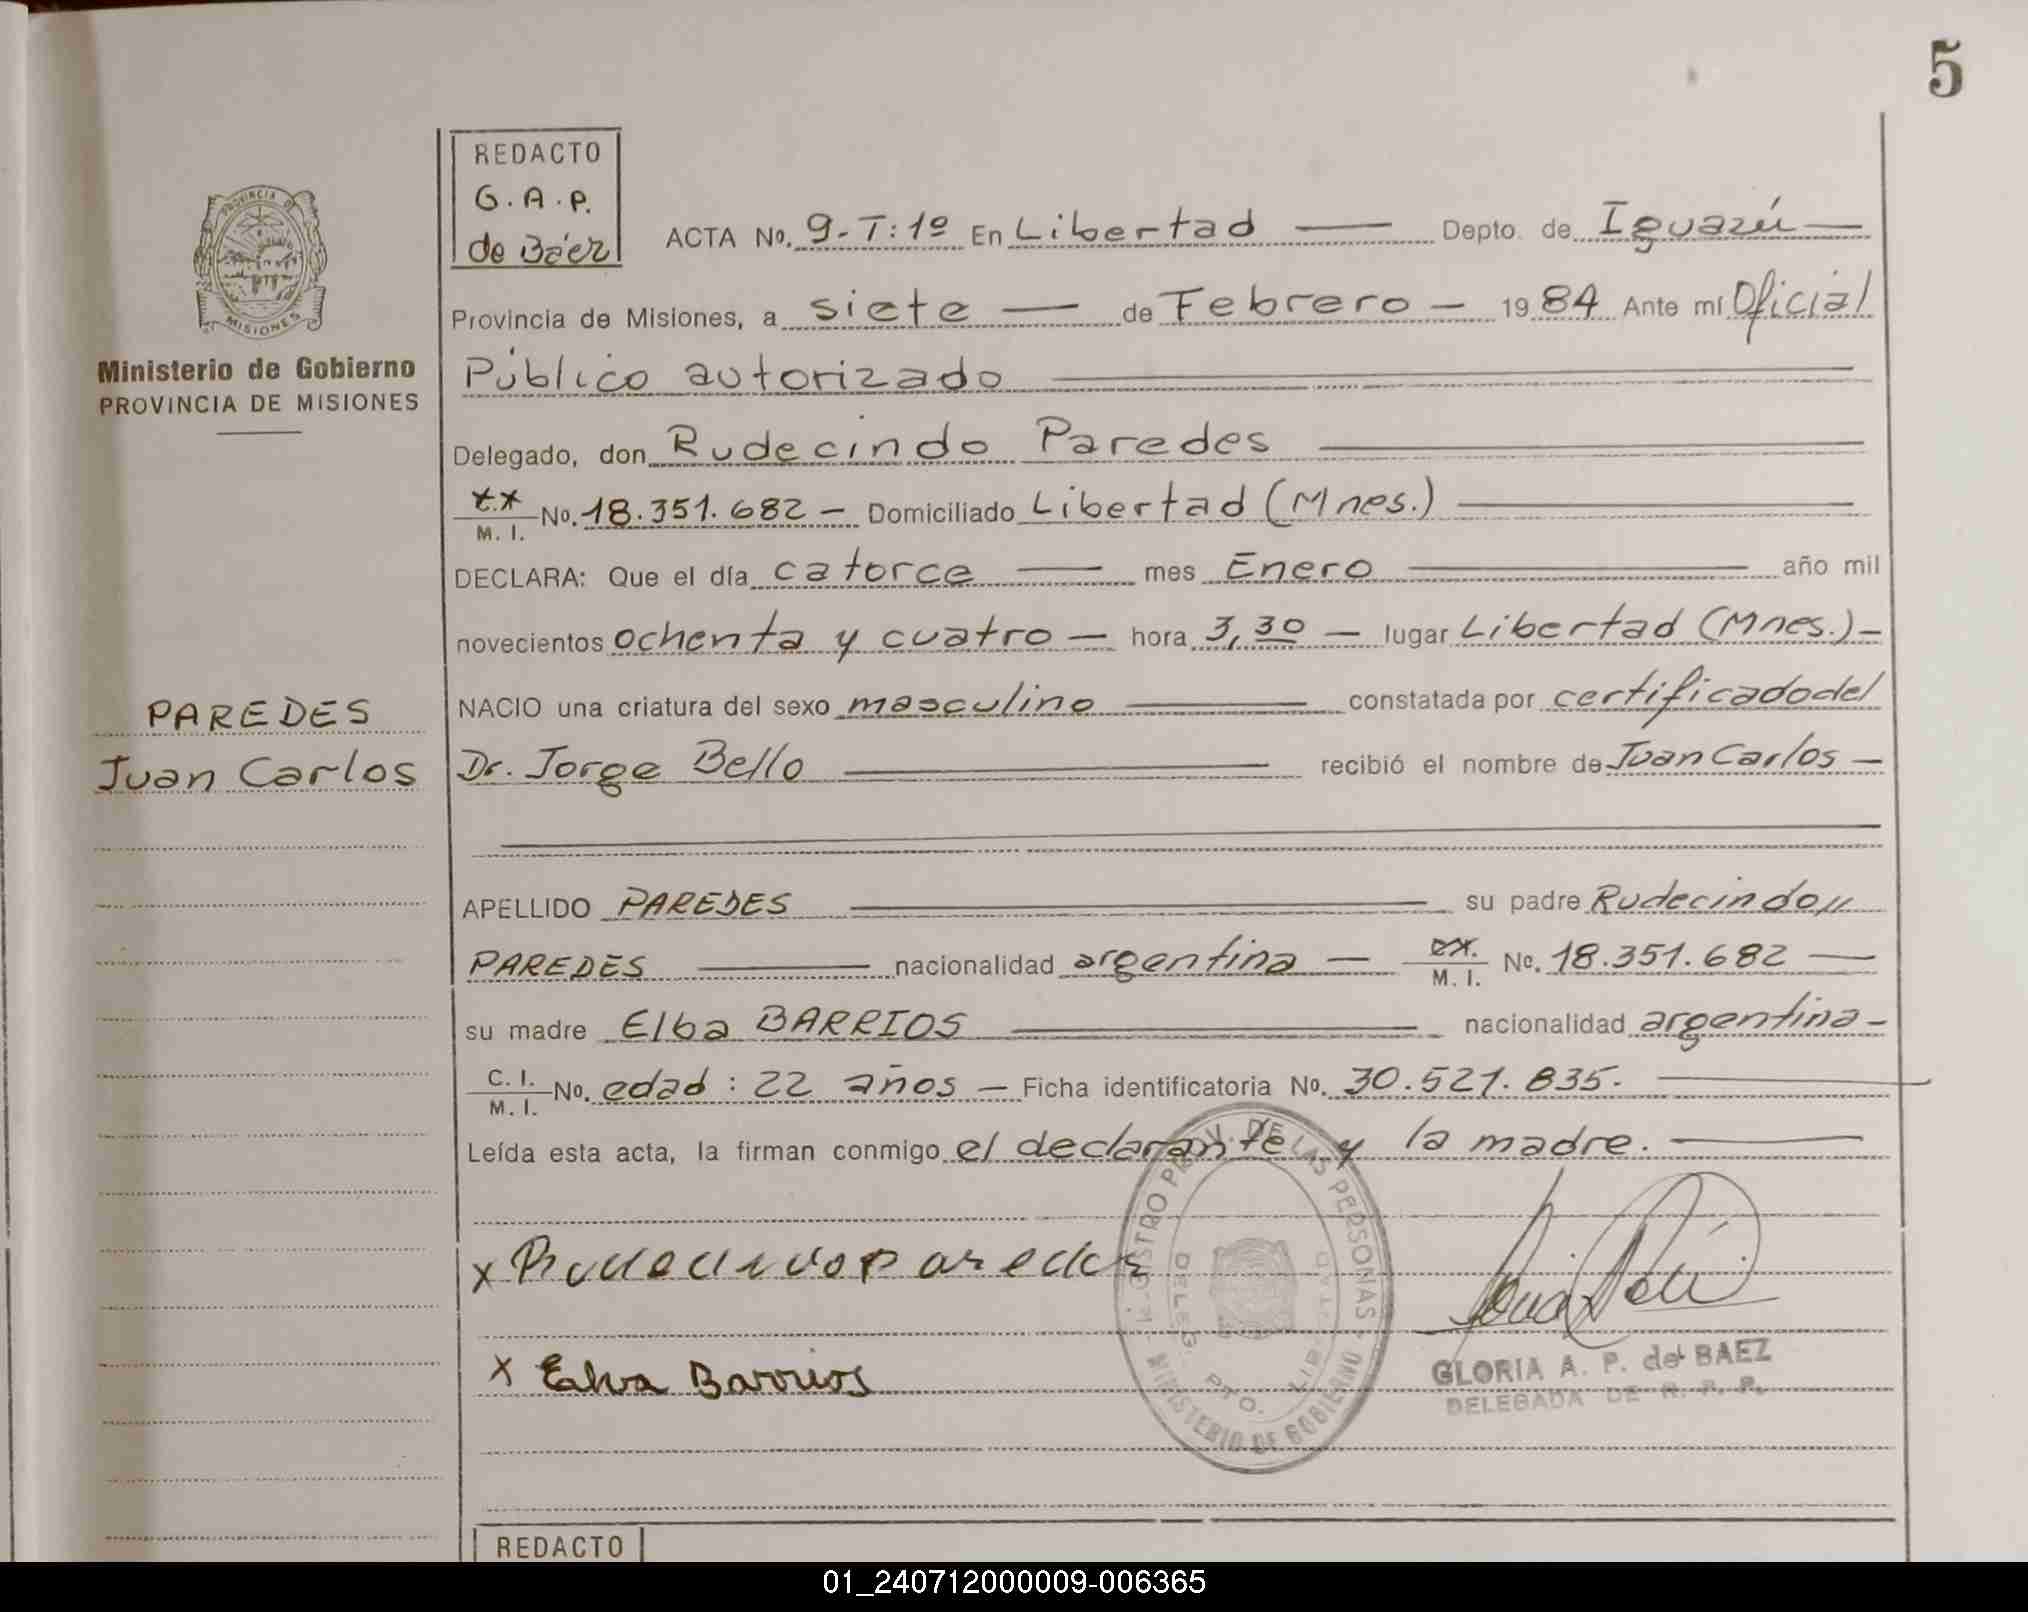 5
REDACTO
G. A. P.
de Báez
ACTA No. 9-T:1º En Libertad — Depto. de Iguazú —
PROVINCIA DE
MISIONES
Provincia de Misiones, a siete — de Febrero — 1984 Ante mí Oficial
Ministerio de Gobierno
PROVINCIA DE MISIONES
Público autorizado
Delegado, don Rudecindo Paredes
M. I. No. 18.351.682 — Domiciliado Libertad (Mnes.)
DECLARA: Que el día catorce — mes Enero — año mil
novecientos ochenta y cuatro — hora 3,30 — lugar Libertad (Mnes.) —
PAREDES
Juan Carlos
NACIO una criatura del sexo masculino — constatada por certificado del
Dr. Jorge Bello — recibió el nombre de Juan Carlos —
APELLIDO PAREDES — su padre Rudecindo //
PAREDES — nacionalidad argentina — M. I. No. 18.351.682 —
su madre Elba BARRIOS — nacionalidad argentina —
C. I. M. I. No. edad : 22 años — Ficha identificatoria No. 30.521.835. —
Leída esta acta, la firman conmigo el declarante y la madre. —
x Rudecindo paredes
x Elva Barrios
REGISTRO PROV. DE LAS PERSONAS
MINISTERIO DE GOBIERNO
DELEG. PTO. LIBERTAD
GLORIA A. P. de BAEZ
DELEGADA DE R. P. P.
REDACTO
01_240712000009-006365